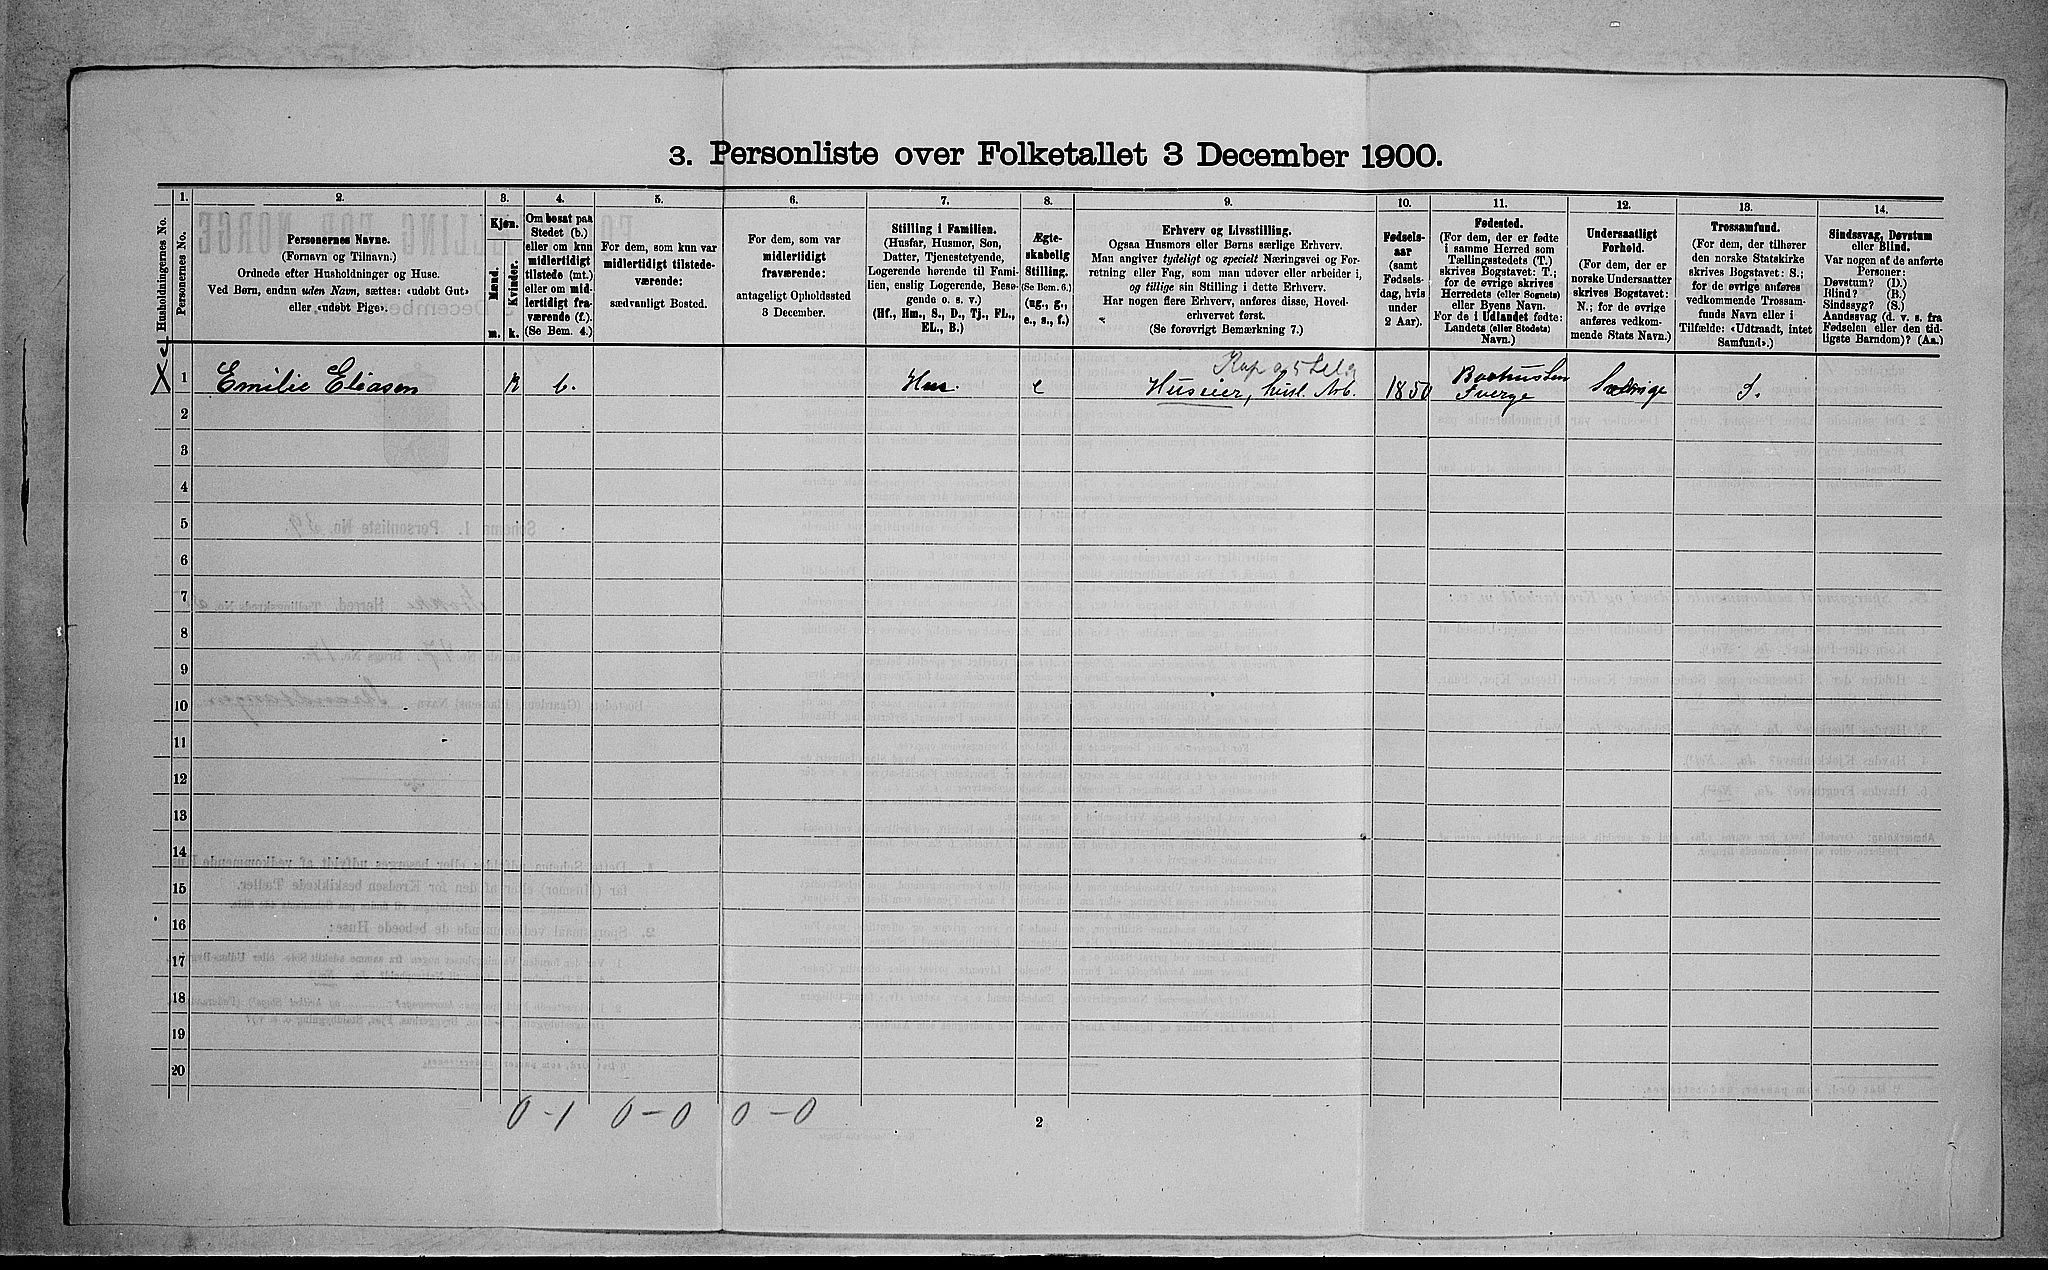 3. Personliste over Folketallet 3 December 1900.
Husholdningernes No.
1.
Personernes No.
2.
Personernes Navne.
(Fornavn og Tilnavn.)
Ordnede efter Husholdninger og Huse.
Ved Børn, endnu uden Navn, sættes: «udøbt Gut»
eller «udøbt Pige».
3.
Kjøn.
Mænd.
Kvinder.
m.
k.
4.
Om bosat paa
Stedet (b.)
eller om kun
midlertidigt
tilstede (mt.)
eller om mid-
lertidigt fra-
værende (f.).
(Se Bem. 4.)
5.
For dem, som kun var
midlertidigt tilstede-
værende:
sædvanligt Bosted.
6.
For dem, som var
midlertidigt
fraværende:
antageligt Opholdssted
3 December.
7.
Stilling i Familien.
(Husfar, Husmor, Søn,
Datter, Tjenestetyende,
Logerende hørende til Fami-
lien, enslig Logerende, Besø-
gende o. s. v.)
(Hf., Hm., S., D., Tj., FL.,
EL., B.)
8.
Ægte-
skabelig
Stilling.
(Se Bem. 6.)
(ug., g.,
e., s., f.)
9.
Erhverv og Livsstilling.
Ogsaa Husmors eller Børns særlige Erhverv.
Man angiver tydeligt og specielt Næringsvei og For-
retning eller Fag, som man udøver eller arbeider i,
og tillige sin Stilling i dette Erhverv.
Har nogen flere Erhverv, anføres disse, Hoved-
erhvervet først.
(Se forøvrigt Bemærkning 7.)
10.
Fødsels-
aar
(samt
Fødsels-
dag, hvis
under
2 Aar).
11.
Fødested.
(For dem, der er fødte
i samme Herred som
Tællingsstedets (T.)
skrives Bogstavet: T.;
for de øvrige skrives
Herredets (eller Sognets)
eller Byens Navn.
For de i Udlandet fødte:
Landets (eller Stedets)
Navn.)
12.
Undersaatligt
Forhold.
(For dem, der er
norske Undersaatter
skrives Bogstavet:
N.; for de øvrige
anføres vedkom-
mende Stats Navn.)
13.
Trossamfund.
(For dem, der tilhører
den norske Statskirke
skrives Bogstavet: S.;
for de øvrige anføres
vedkommende Trossam-
funds Navn eller i
Tilfælde: «Udtraadt, intet
Samfund».)
14.
Sindssvag, Døvstum
eller Blind.
Var nogen af de anførte
Personer:
Døvstum? (D.)
Blind? (B.)
Sindssyg? (S.)
Aandssvag (d. v. s. fra
Fødselen eller den tid-
ligste Barndom)? (Aa.)
1 Emilie Eliasen K b. Hm. e Huseier, husl. Arb. 1850 Sverge S.
2
3
4
5
6
7
8
9
10
11
12
13
14
15
16
17
18
19
20
0-1 0-0 0-0
2